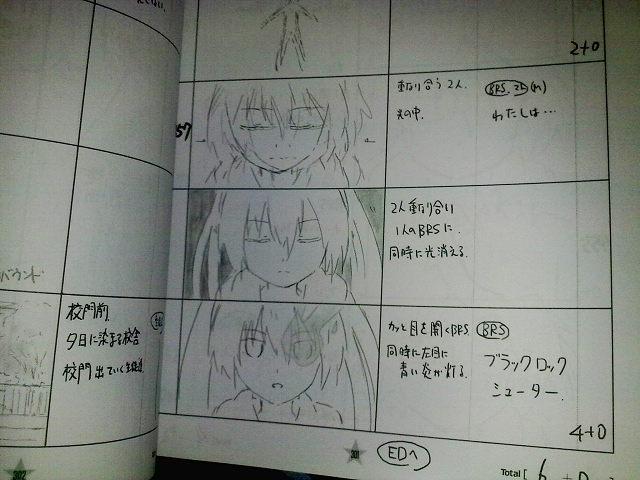 2+0
57
重なり合う2人
光の中.
BRS
わたしは…
2人重なり合い
1人のBRSに.
同時に光消える.
カッと目を開くBRS.
同時に左目に
青い炎が灯る.
BRS
ブラックロック
シューター.
4+0
301
EDへ
Total [ 6 + 0
バウンド
校門前.
夕日に染まる校舎
校門出ていく生徒達
302